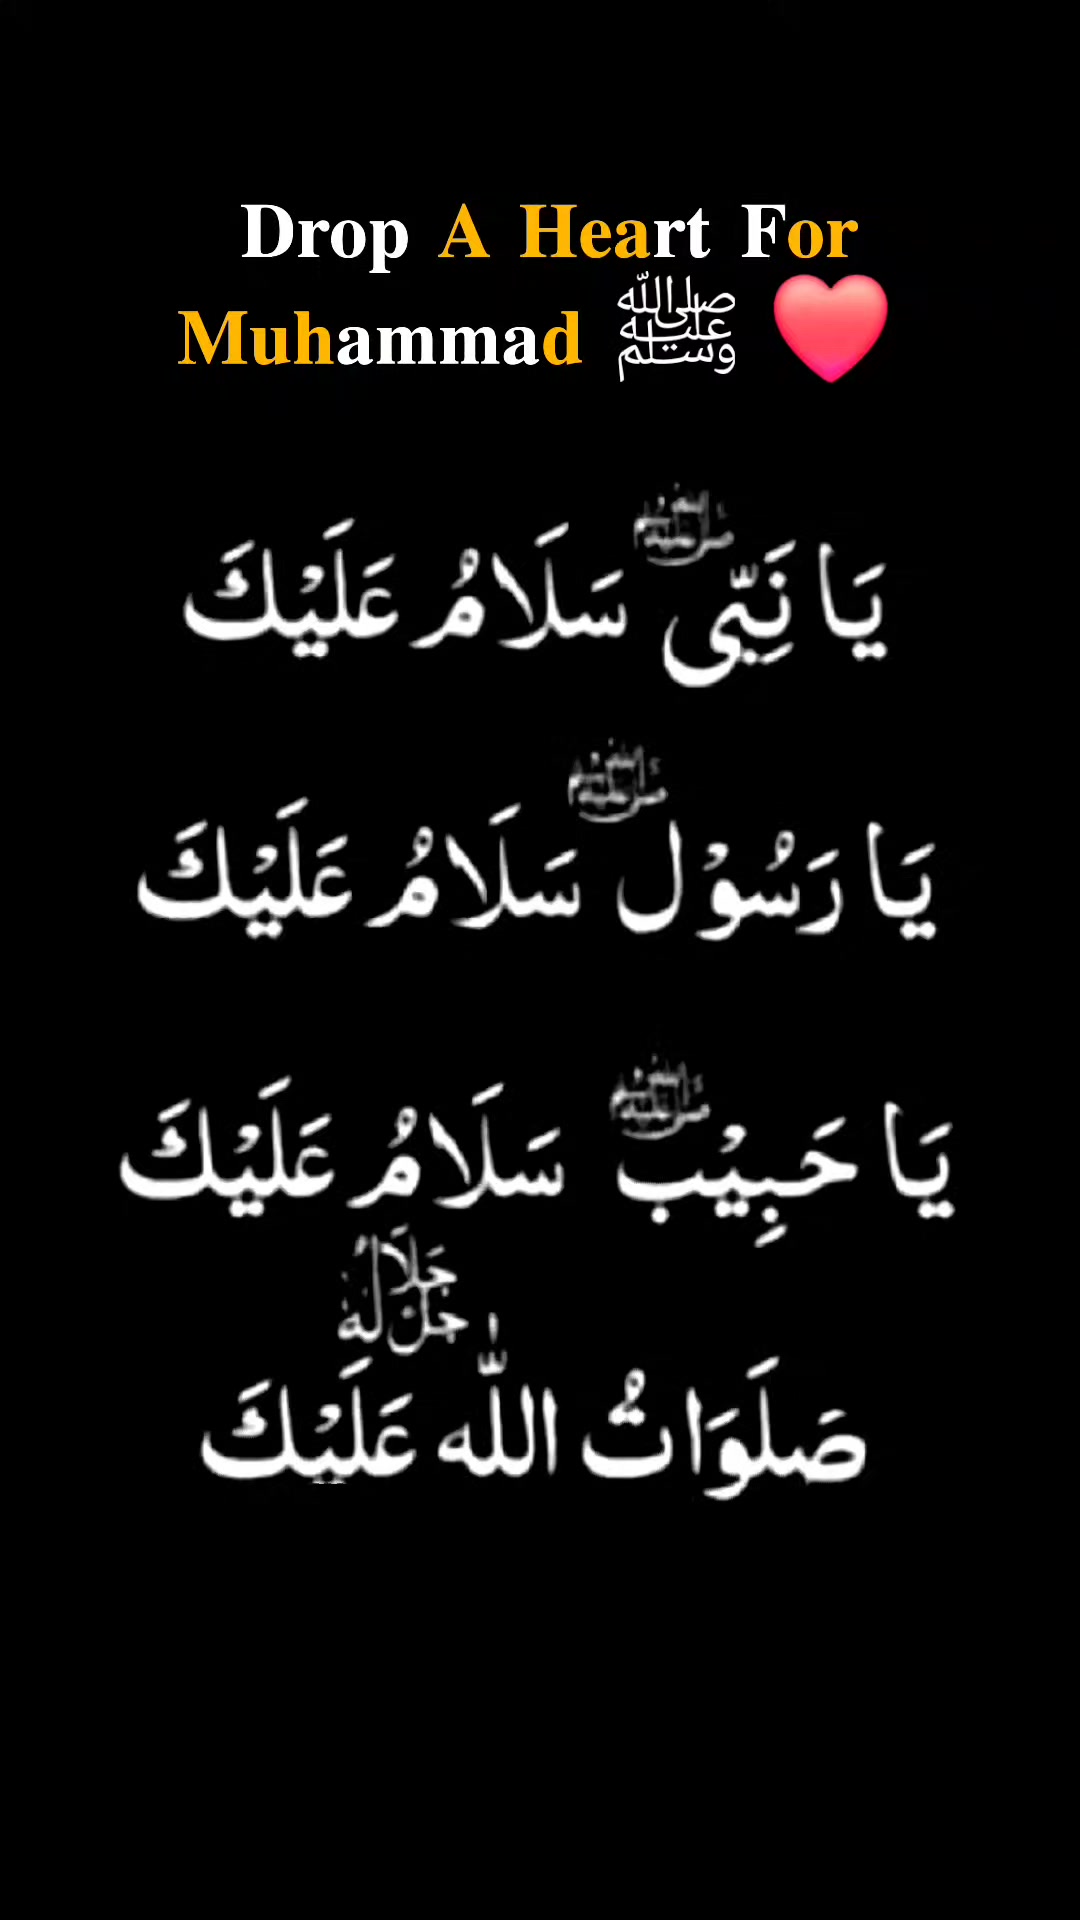 Drop A Heart For
Muhammad ﷺ ❤️
يَا نَبِّى ﷺ سَلَامُ عَلَيْكَ
يَا رَسُوْل ﷺ سَلَامُ عَلَيْكَ
يَا حَبِيْب ﷺ سَلَامُ عَلَيْكَ
جَلَّ جَلَالُهٗ
صَلَوَاتُ اللّٰه عَلَيْكَ